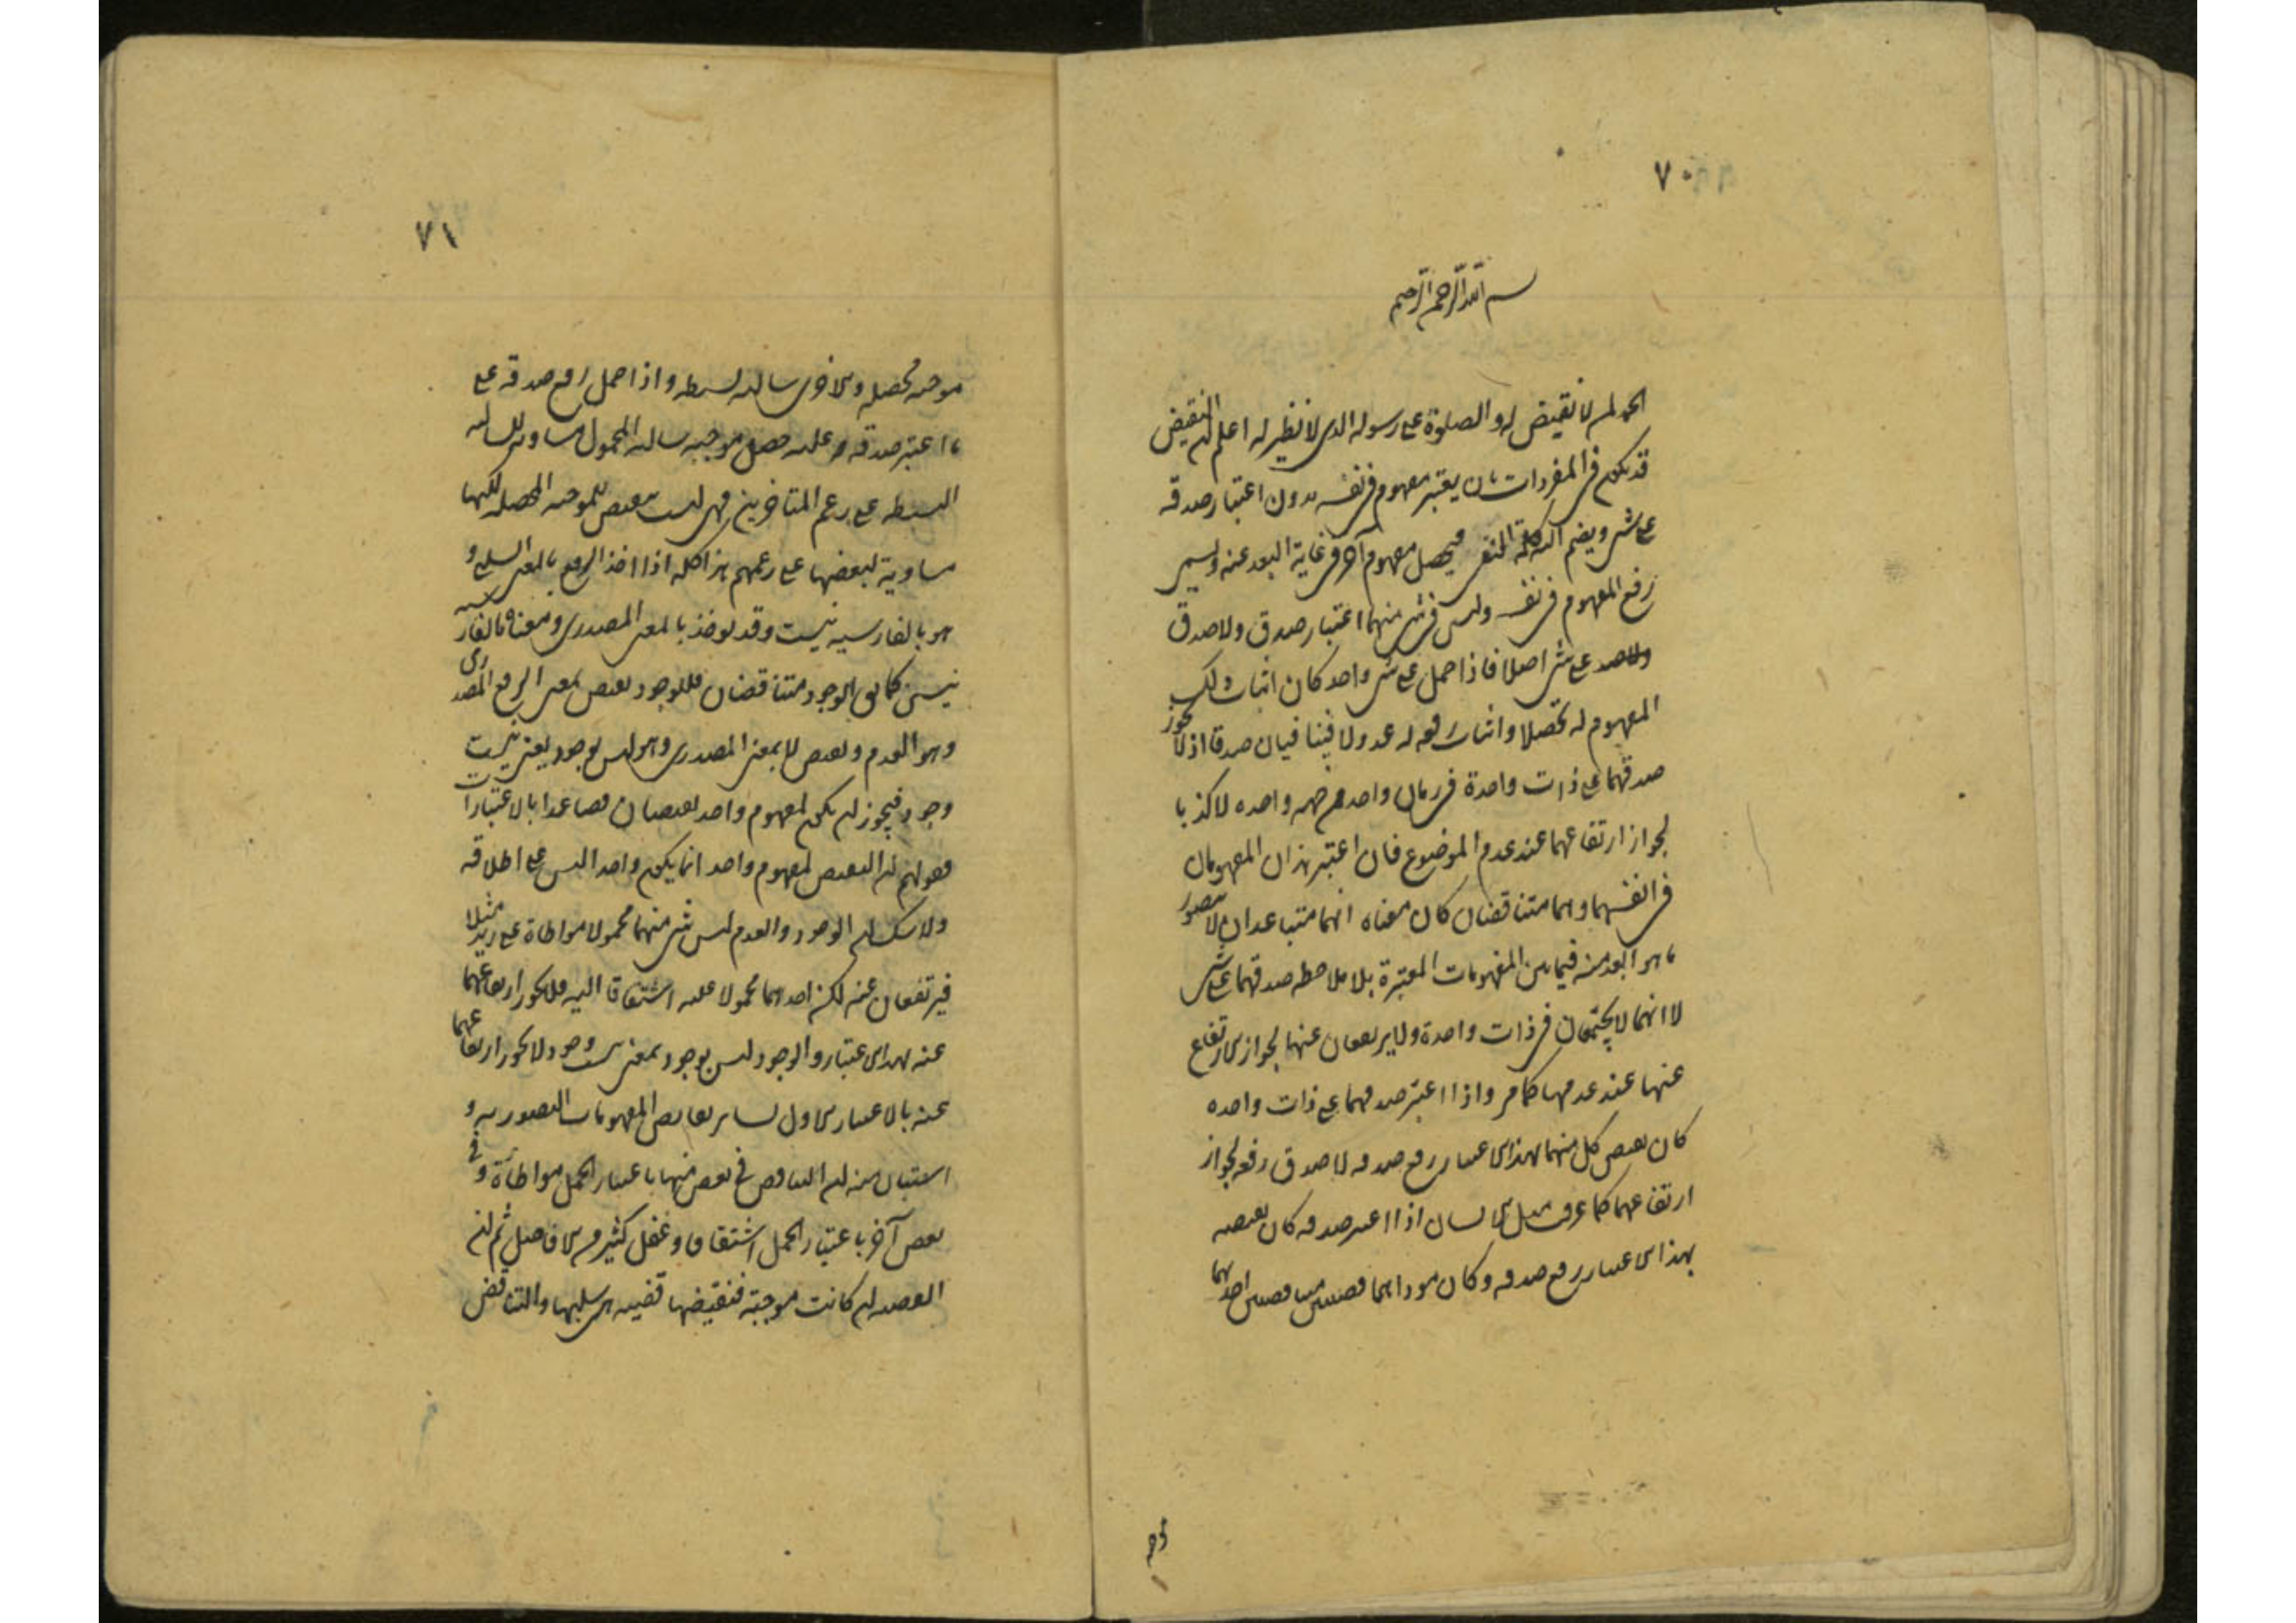 ٧٠
بسم الله الرحمن الرحيم
الحمد لمن لا نقيض له والصلوة على رسوله الذى لا نظير له اعلم ان النقيض
قد يكون فى المفردات بان يعتبر مفهوم فى نفسه بدون اعتبار صدقه
على شى ويضم اليه كلمة النفى فيحصل مفهوم آخر فى غاية البعد عنه ويسمى
رفع المفهوم فى نفسه وليس فى شى منهما اعتبار صدق ولا صدق
ولاصد على شى اصلا فاذا حمل على شى واحد كان اثبات ذلك
المفهوم له تحصلا واثبات رفعه له عدولا فيتنافيان صدقا اذ لا يجوز
صدقهما على ذات واحدة فى زمان واحد من جهه واحده لا كذبا
لجواز ارتفاعهما عند عدم الموضوع فان اعتبر هذان المفهومان
فى انفسهما وهما متناقضان كان معناه انهما متباعدان لا يتصور
ما هو ابعد منه فيما بين المفهومات المعتبرة بلا ملاحظه صدقهما على شى
لا انهما لا يجتمعان فى ذات واحدة ولا يرتفعان عنها لجواز الارتفاع
عنها عند عدمها كما مر واذا اعتبر صدقهما على ذات واحده
كان نقيض كل منهما بهذا الاعتبار رفع صدقه لا صدق رفعه لجواز
ارتفاعهما كما عرفت مثل الانسان اذا اعتبر صدقه كان نقيضه
بهذا الاعتبار رفع صدقه وكان موداهما قضيتين متناقضتين احدهما
موجبه
٧١
موجبه محصله والاخرى سالبه بسيطه واذا حمل رفع صدقه على
ما اعتبر صدقه عليه حصل موجبه سالبه المحمول مساويه للسالبه
البسيطه على زعم المتاخرين فهى ليست بنقيض للموجبه المحصله لكنها
مساوية لنقيضها على زعمهم هذا كله اذا اخذ الرفع بالمعنى السلبى و
هو بالفارسيه نيست وقد يوخذ بالمعنى المصدرى ومعناه بالفارسيه
نيستى كما فى الوجود متناقضان فللوجود نقيض بمعنى الرفع المصدرى
وهو العدم ونقيض لا بمعنى المصدرى وهو ليس بوجود يعنى نيست
وجود فيجوز ان يكون لمفهوم واحد نقيضان فصاعدا بالاعتبارات
فقولهم ان النقيض لمفهوم واحد انما يكون واحدا ليس على اطلاقه
ولا شك ان الوجود والعدم ليس شى منهما محمولا مواطاة على زيد مثلا
فيرتفعان عنه لكن احدهما محمولا عليه اشتقاقا اليه فلا يجوز ارتفاعهما
عنه بهذا الاعتبار والوجود ليس بوجود بمعنى نيست وجود لا يجوز ارتفاعهما
عنه بالاعتبار الاول لسائر نقايض المفهومات التصوريه و
استبان منه ان التناقض فى بعض منها باعتبار الحمل مواطاة و فى
بعض آخر باعتبار الحمل اشتقاقا وغفل كثير من الافاضل ثم ان
القضيه ان كانت موجبة فنقيضها قضيه هى سلبها والتناقض